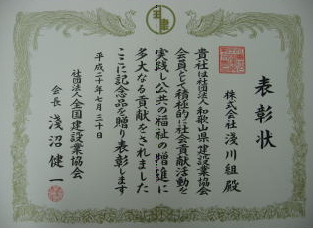 表彰状
株式会社 浅川組殿
貴社は社団法人和歌山県建設業協会
会員として積極的に社会貢献活動を
実践し公共の福祉の増進に
多大なる貢献をされました
ここに記念品を贈り表彰します
平成二十年七月三十日
社団法人全国建設業協会
会長 淺沼健一